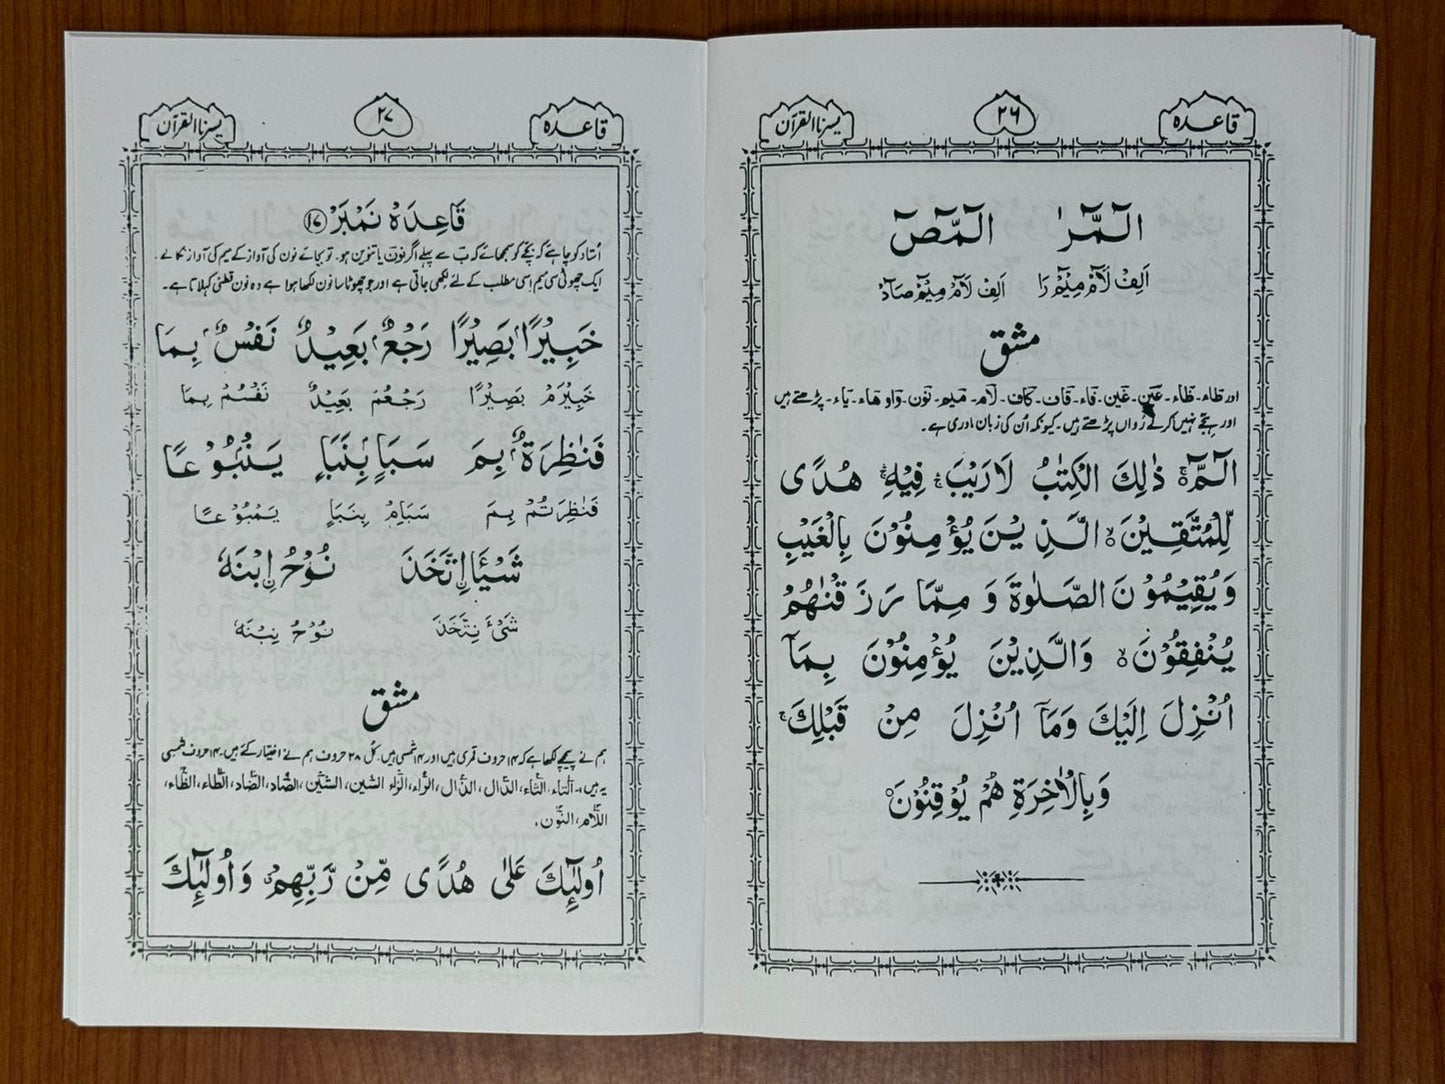 قاعدہ ٢٦ یسرنا القرآن
الٓمّٓرٰ الٓمّٓصٓ
اَلِفْ لَآمْ مِیْٓمْ رَا اَلِفْ لَآمْ مِیْٓمْ صَآدْ
مشق
اور طاء۔ ظاء۔ عین۔ غین۔ فاء۔ قاف۔ کاف۔ لام۔ میم۔ نون۔ واو ھاء۔ یاء۔ پڑھتے ہیں
اور ہجے نہیں کرتے رواں پڑھتے ہیں۔ کیونکہ اُن کی زبان مادری ہے۔
الٓمّٓ ۚ ذٰلِكَ الْكِتٰبُ لَارَيْبَ ۛۚ فِيْهِ ۛۚ هُدًى
لِّلْمُتَّقِيْنَ ۙ الَّذِيْنَ يُؤْمِنُوْنَ بِالْغَيْبِ
وَيُقِيْمُوْنَ الصَّلٰوةَ وَ مِمَّا رَزَقْنٰهُمْ
يُنْفِقُوْنَ ۙ وَالَّذِيْنَ يُؤْمِنُوْنَ بِمَآ
اُنْزِلَ اِلَيْكَ وَمَآ اُنْزِلَ مِنْ قَبْلِكَ ۚ
وَبِالْاٰخِرَةِ هُمْ يُوْقِنُوْنَ ۟
قاعدہ ٢٧ یسرنا القرآن
قَاعِدَہْ نَمْبَرْ ١٧
اُستاد کو چاہئے کہ بچے کو سمجھائے کہ ب سے پہلے اگر نون یا تنوین ہو۔ تو بجائے نون کی آواز کے میم کی آواز نکالے۔
ایک چھوٹی سی میم اسی مطلب کے لئے لکھی جاتی ہے اور جو چھوٹا سا نون لکھا ہوا ہے وہ نون قطنی کہلاتا ہے۔
خَبِيْرًاۢ بَصِيْرًا رَجْعٌۢ بَعِيْدٌ نَفْسٌۢ بِمَا
خَبِيْرَمْ بَصِيْرًا رَجْعُمْ بَعِيْدٌ نَفْسُمْ بِمَا
فَنٰظِرَةٌۢ بِمَ سَبَاٍۢ بِنَبَاٍ يَنْۢبُوْعًا
فَنٰظِرَتُمْ بِمَ سَبَاِمْ بِنَبَاٍ يَمْبُوْعًا
شَيْـًٔا اِۨتَّخَذَ نُوْحُ اِۨبْنَهٗ
شَیْءَ نِتَّخَذَ نُوْحُ نِبْنَهٗ
مشق
ہم نے پیچھے لکھا ہے کہ ١٤ حروف قمری ہیں اور ١٤ شمسی ہیں۔ کُل ٢٨ حروف ہم نے اختیار کئے ہیں۔ ١٤ حروف شمسی
یہ ہیں۔ اَلتاء، الثّاء، الدّال، الذّال، الرّاء، الزّاء السّین، الشّین، الصّاد، الضّاد، الطّاء، الظّاء،
اللّام، النّون۔
اُولٰٓئِكَ عَلٰى هُدًى مِّنْ رَّبِّهِمْ وَاُولٰٓئِكَ